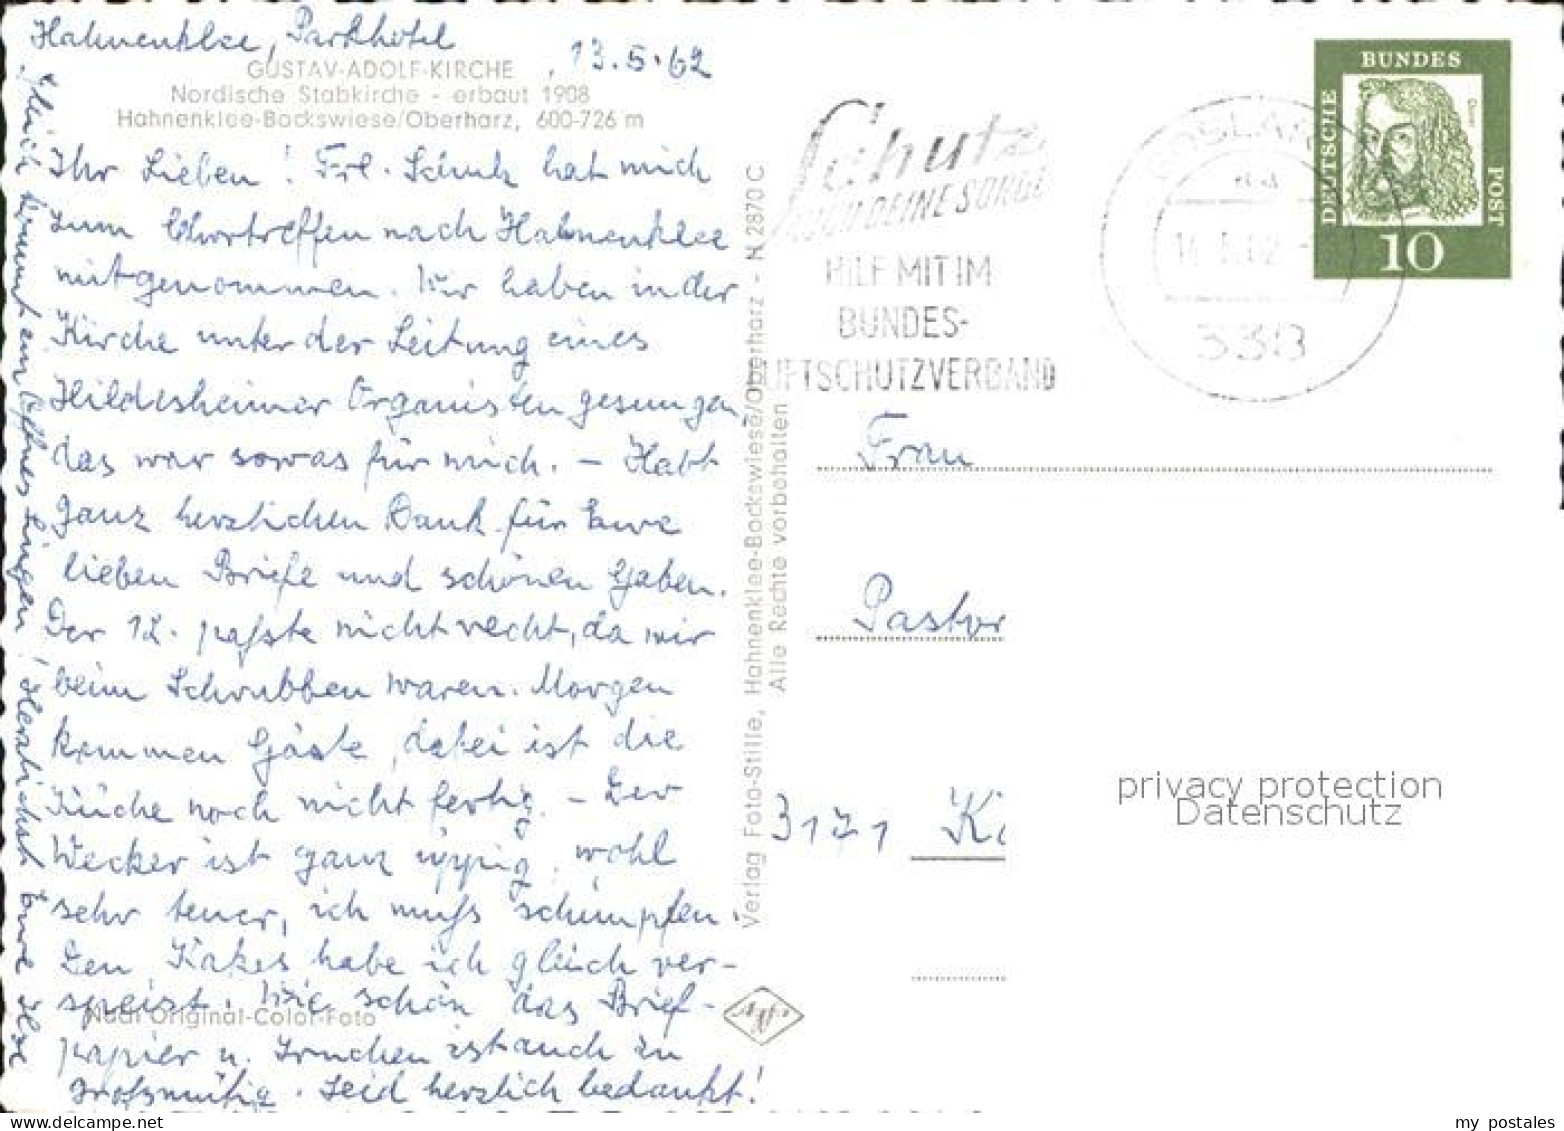 Hahnenklee, Parkhotel
, 13.5.62
GUSTAV-ADOLF-KIRCHE
Nordische Stabkirche - erbaut 1908
Hahnenklee-Bockswiese/Oberharz, 600-726 m
Ihr Lieben! Frl. Schulz hat mich
zum Chortreffen nach Hahnenklee
mitgenommen. Wir haben in der
Kirche unter der Leitung eines
Hildesheimer Organisten gesungen,
das war sowas für mich. - Habt
ganz herzlichen Dank für Eure
lieben Briefe und schönen Gaben.
Der 12. paßte nicht recht, da wir
beim Schrubben waren. Morgen
kommen Gäste, dabei ist die
Küche noch nicht fertig. - Der
Wecker ist ganz üppig, wohl
sehr teuer, ich muß schimpfen!
Den Kakes habe ich gleich ver-
speist. Wie schön das Brief-
papier u. ist auch zu
großmütig. Seid herzlich bedankt!
Gleich kommt ein Offnes Singen! Herzlichst Eure Ilse
Nach Original-Color-Foto
Verlag Foto-Stille, Hahnenklee-Bockswiese/Oberharz - N 2870 C
Alle Rechte vorbehalten
Schutz
AUCH DEINE SORGE
HILF MIT IM
BUNDES-
LUFTSCHUTZVERBAND
GOSLAR
338
DEUTSCHE
BUNDES
POST
10
Frau
Pastor
3171 Ki
privacy protection
Datenschutz
www.delcampe.net
my_postales